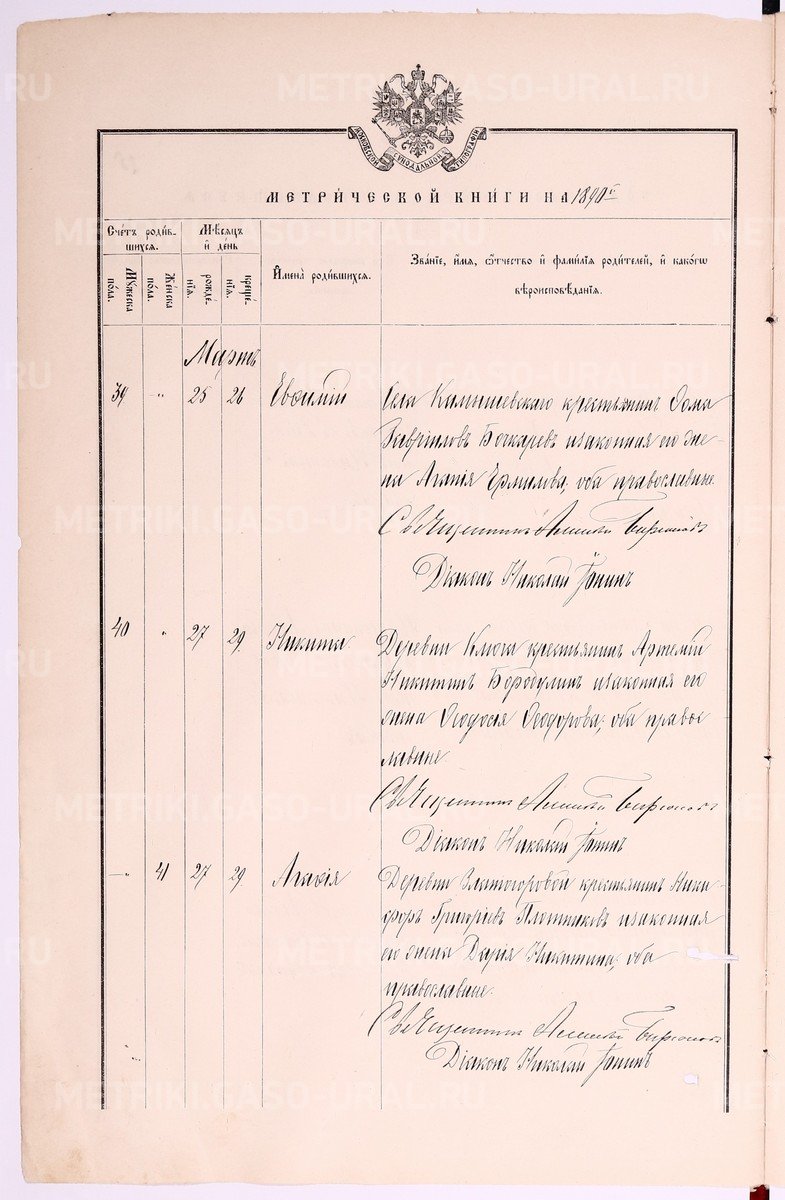 METRIKI.GASO-URAL.RU
МОСКОВСКОЙ СУНОДАЛЬНОЙ ТИПОГРАФІИ
МЕТРИ́ЧЕСКОЙ КНИ́ГИ НА 1890 г
Сче́тъ роди́в-
шихся.
Мꙋ́жеска по́ла.
Же́нска по́ла.
Мѣ́сяцъ и҆ де́нь
рожде́нїѧ.
креще́нїѧ.
И҆мена̀ роди́вшихся.
Зва́нїе, и҆́мѧ, ѻ҆́тчество и҆ фами́лїѧ роди́телей, и҆ како́гѡ
вѣроисповѣ́данїѧ.
Мартъ
39 " 25 26 Евѳимій
Села Камышевскаго крестьянинъ Ѳома
Гавріиловъ Бочкаревъ и законная его же-
на Агапія Ермилова, оба православные.
Священникъ Бирюковъ
Діаконъ Николай Ганинъ
40 " 27 29. Никита
Деревни Ключа крестьянинъ Артемій
Никитинъ Бородулинъ и законная его
жена Ѳеодосія Ѳеодорова, оба правос
лавные.
Священникъ Бирюковъ
Діаконъ Николай Ганинъ
—" 41 27 29. Агаѳія
Деревни Златогоровой крестьянинъ Ники-
форъ Григоріевъ Плотниковъ и законная
его жена Дарія Никитина, оба
православные.
Священникъ Бирюковъ
Діаконъ Николай Ганинъ